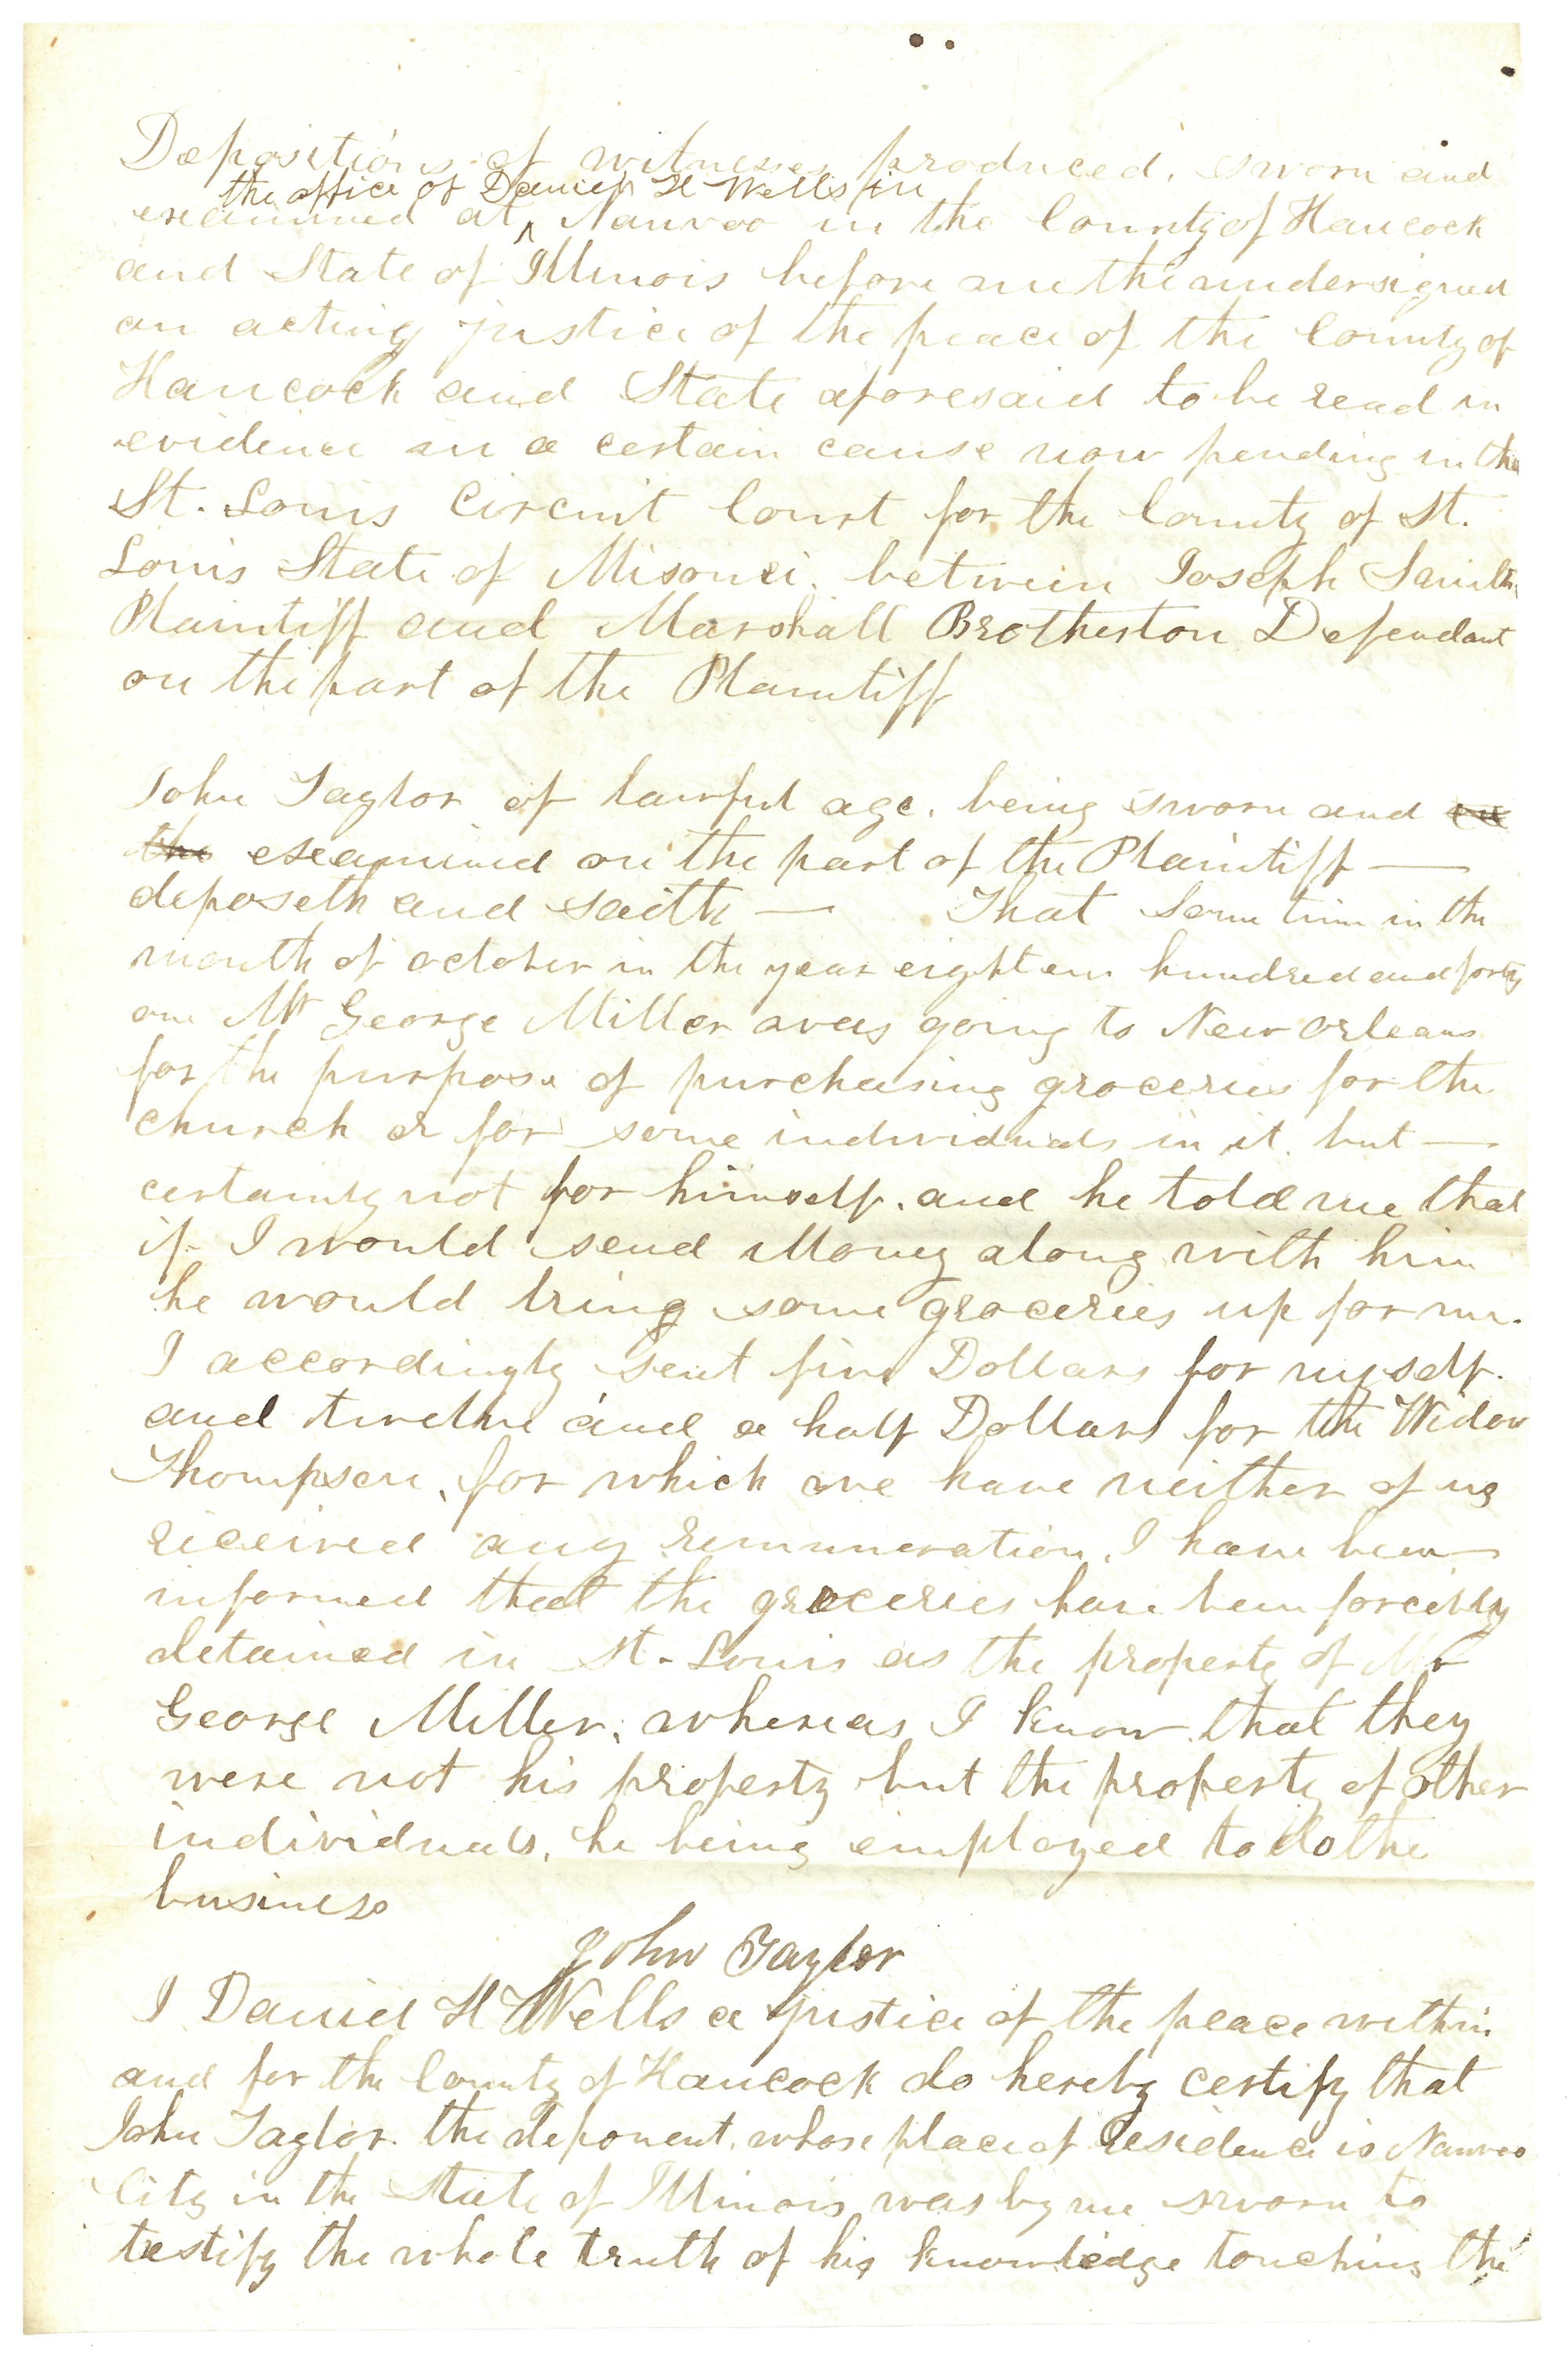 Depositions of witnesses produced, sworn and
the office of Daniel H Wells in
examined at ^ Nauvoo in the County of Hancock
and State of Illinois before me the undersigned
an acting justice of the peace of the County of
Hancock and State aforesaid to be read in
evidence in a certain cause now pending in the
St. Louis Circuit Court for the County of St.
Louis State of Misouri. between Joseph Smith
Plaintiff and Marshall Brotherton Defendant
on the part of the Plaintiff
John Taylor of lawful age, being sworn and ex
the examined on the part of the Plaintiff —
deposeth and saith — That some time in the
month of october in the year eighteen hundred and forty
one Mr George Miller was going to New orleans
for the purpose of purchasing groceries for the
church or for some individuals in it. but —
certainly not for himself. and he told me that
if I would send Money along with him
he would bring some groceries up for me.
I accordingly sent five Dollars for myself.
and twelve and a half Dollars for the Widow
Thompson, for which we have neither of us
received any remuneration, I have been —
informed that the groceries have been forcibly
detained in St. Louis as the property of Mr
George Miller, whereas I know that they
were not his property but the property of other
individuals, he being employed to do the
business
John Taylor
I Daniel H Wells a justice of the peace within
and for the County of Hancock do hereby certify that
John Taylor. the deponent, whose place of residence is Nauvoo
City in the State of Illinois, was by me sworn to
testify the whole truth of his knowledge touching the